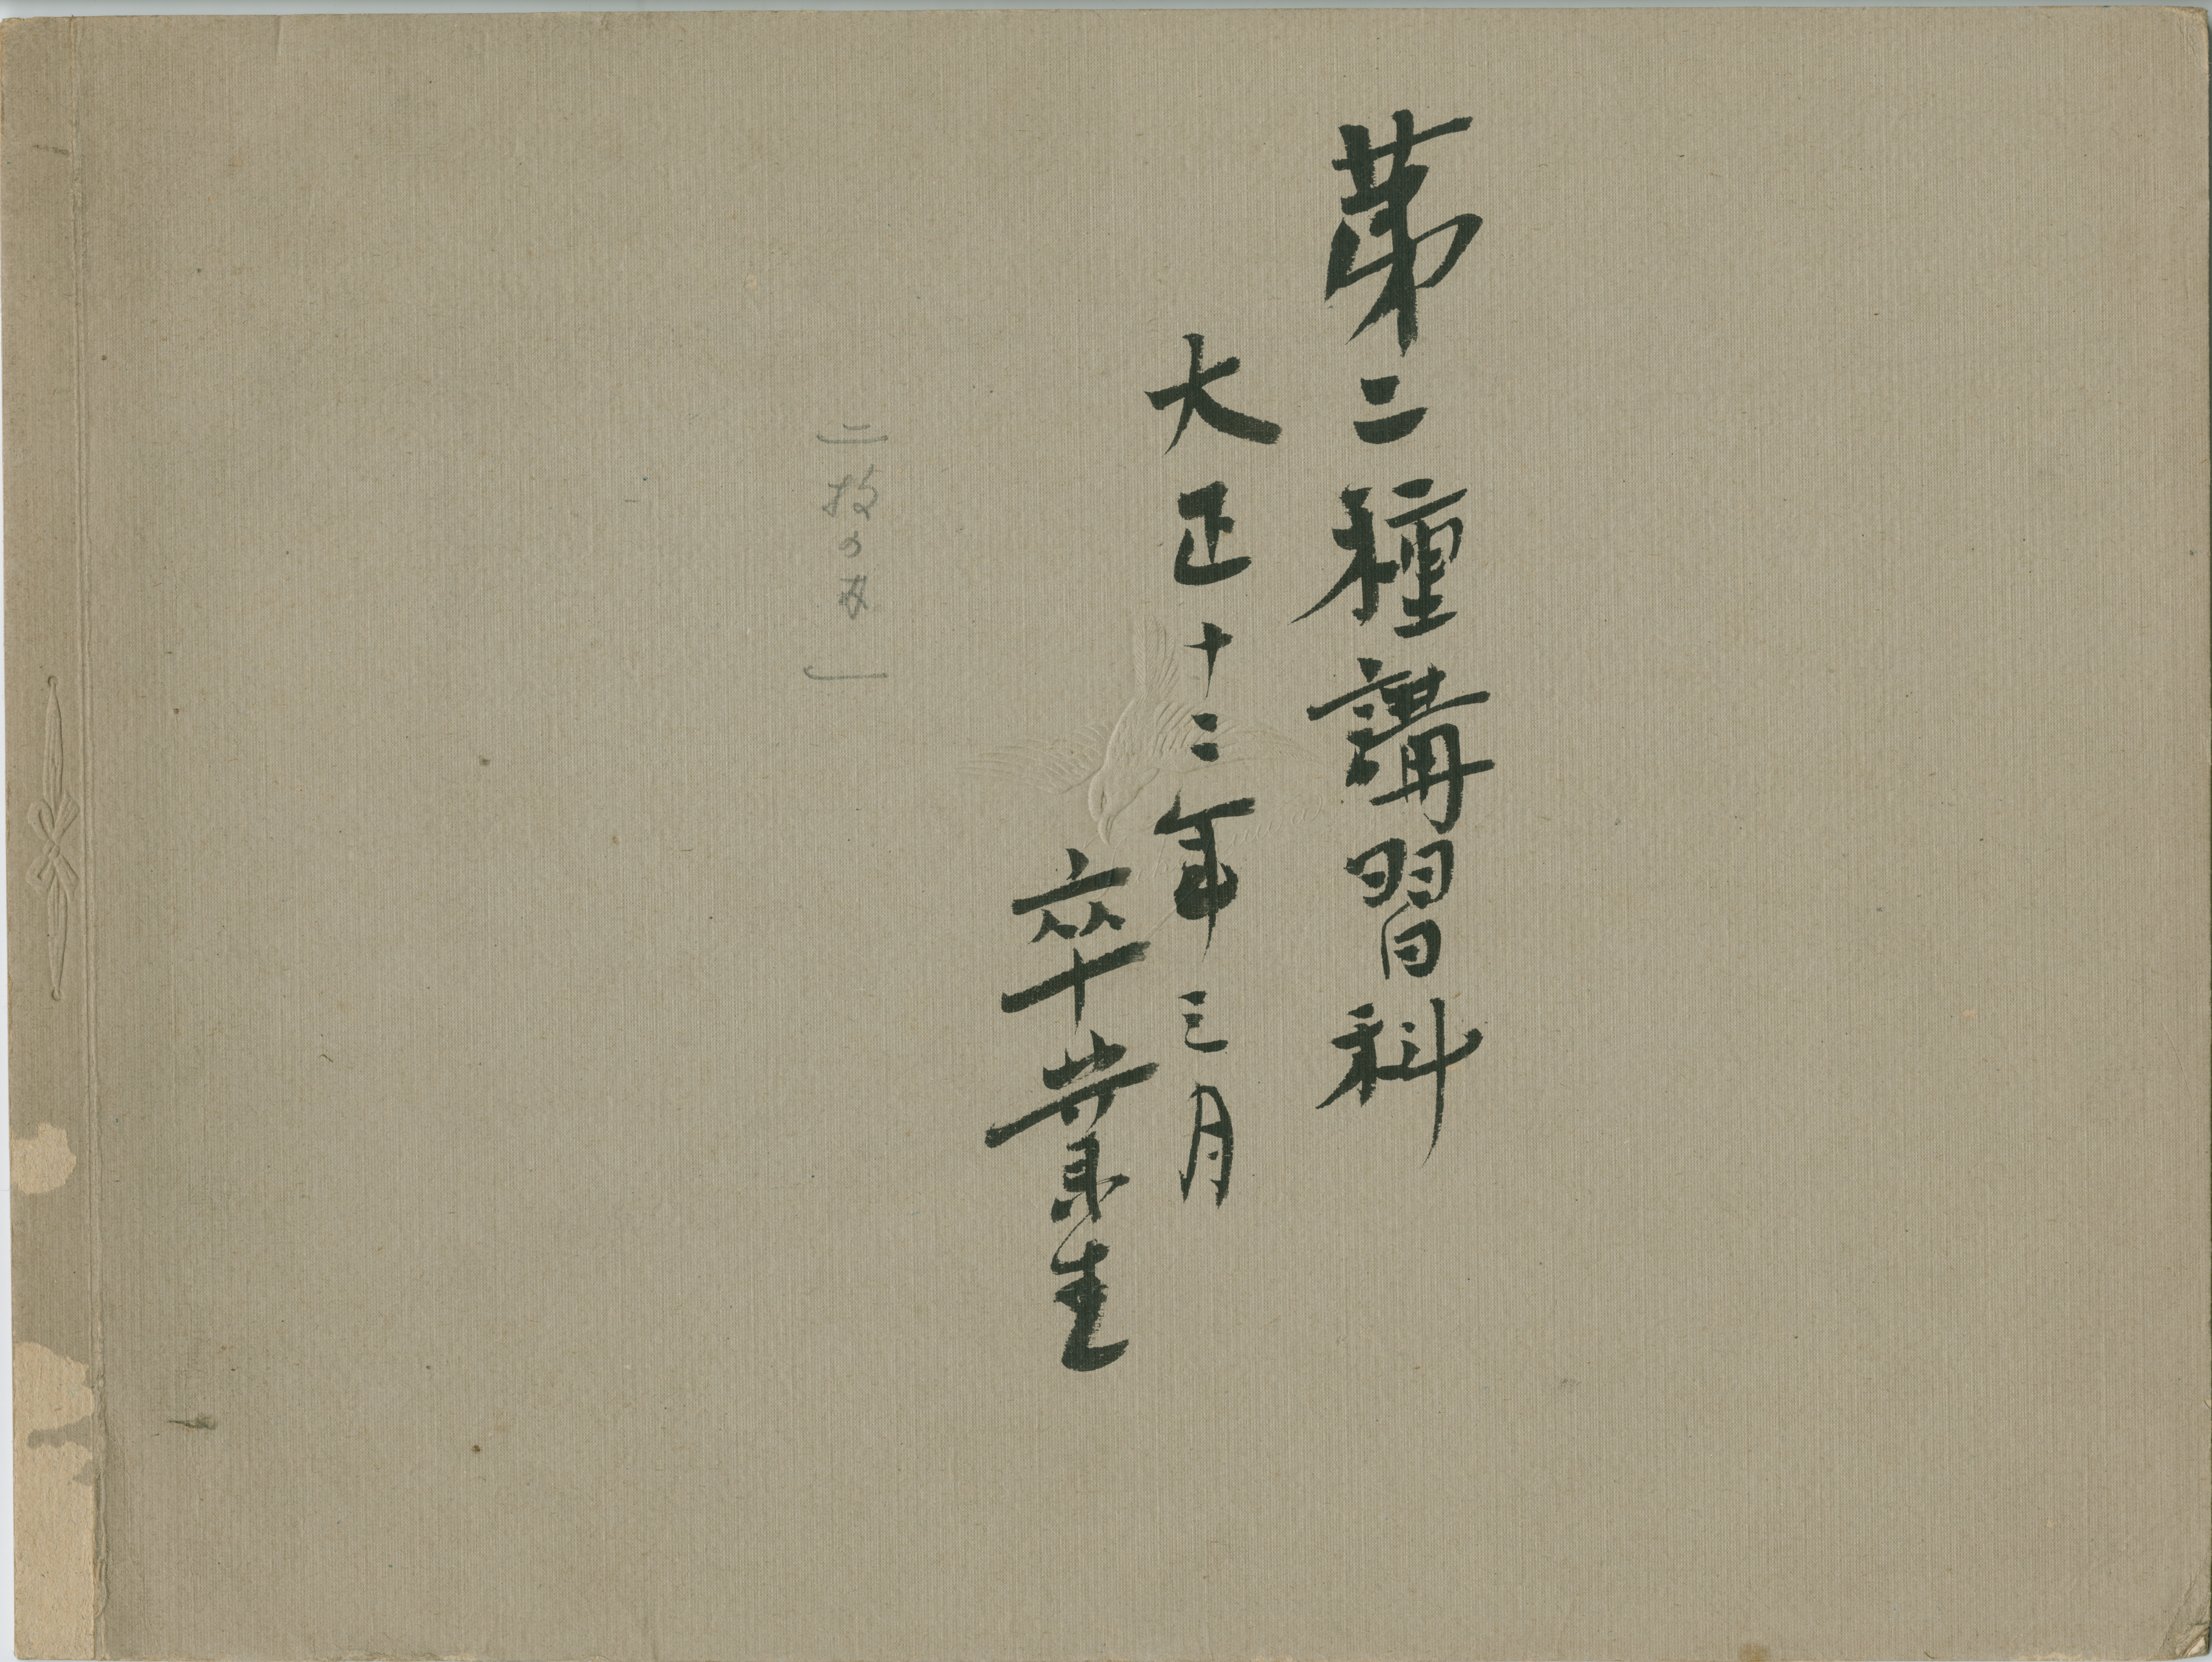 第二種講習科
大正十二年三月
卒業生
二枚の内